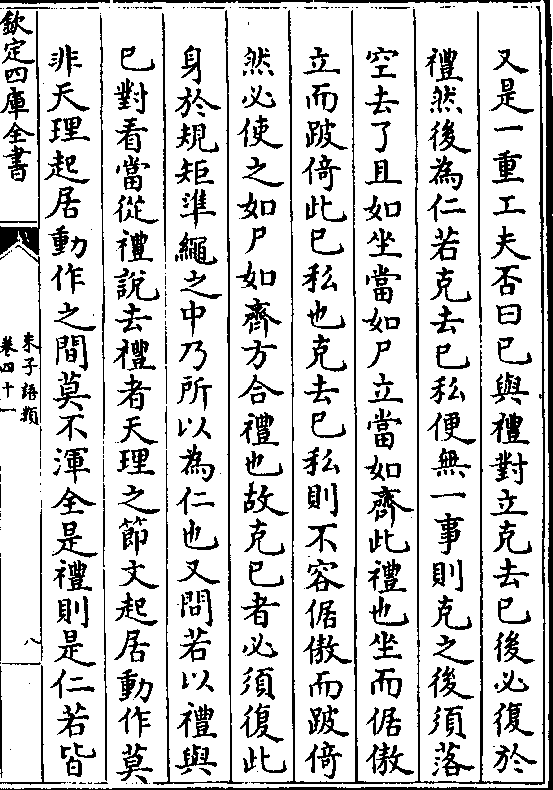 又是一重工夫否曰已與禮對立克去已後必復於
禮然後為仁若克去已私便無一事則克之後須落
空去了且如坐當如尸立當如齊此禮也坐而倨傲
立而跛倚此已私也克去已私則不容倨傲而跛倚
然必使之如尸如齊方合禮也故克已者必須復此
身於規矩準繩之中乃所以為仁也又問若以禮與
已對看當從禮說去禮者天理之節文起居動作莫
非天理起居動作之間莫不渾全是禮則是仁若皆
欽定四庫全書
朱子語類
卷四十一
八